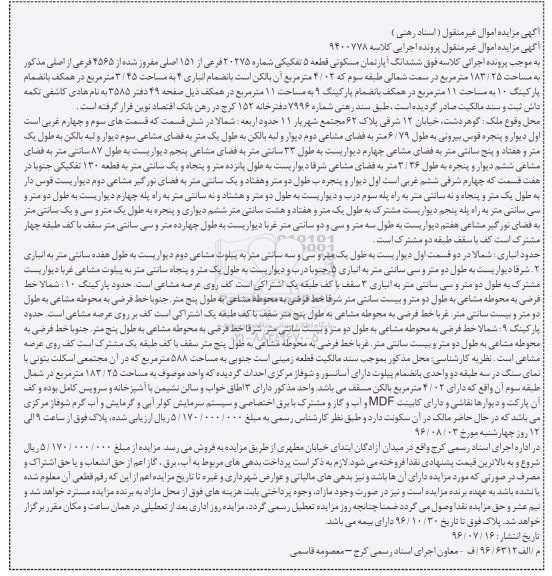 آگهی مزایده اموال غیرمنقول ( اسناد رهنی )
آگهی مزایده اموال غیرمنقول پرونده اجرایی کلاسه ۹۴۰۰۷۷۸
به موجب پرونده اجرائی کلاسه فوق ششدانگ آپارتمان مسکونی قطعه ۵ تفکیکی شماره ۲۰۲۷۵ فرعی از ۱۵۱ اصلی مفروز شده از ۴۵۶۵ فرعی از اصلی مذکور
به مساحت ۱۸۳/۲۵ مترمربع در سمت شمالی طبقه سوم که ۴/۰۲ مترمربع آن بالکن است بانضمام انباری ۴ به مساحت ۳/۴۵ مترمربع در همکف بانضمام
پارکینگ ۱۰ به مساحت ۱۱ مترمربع در همکف بانضمام پارکینگ ۹ به مساحت ۱۱ مترمربع در همکف ذیل صفحه ۴۹ دفتر ۳۵۸۵ به نام هادی کاشفی تکمه
داش ثبت و سند مالکیت صادر گردیده است ، طبق سند رهنی شماره ۷۹۹۶ دفترخانه ۱۵۲ کرج در رهن بانک اقتصاد نوین قرار گرفته است .
محل وقوع ملک : گوهردشت، خیابان ۱۲ شرقی پلاک ۶۲ مجتمع شهریار ۱۱ حدود اربعه : شمالا در شش قسمت که قسمت های سوم و چهارم غربی است
اول دیوار و پنجره قوس بیرونی به طول ۶/۷۹ متر به فضای مشاعی دوم دیوار و لبه بالکن به طول یک متر به فضای مشاعی سوم دیوار و لبه بالکن به طول یک
متر و هفتاد و پنج سانتی متر به فضای مشاعی چهارم دیواریست به طول ۳۳ سانتی متر به فضای مشاعی پنجم دیواریست به طول ۸۷ سانتی متر به فضای
مشاعی ششم دیوار و پنجره به طول ۳/۳۶ متر به فضای مشاعی شرقا دیواریست به طول پانزده متر و پنجاه و یک سانتی متر به قطعه ۱۳۰ تفکیکی جنوبا در
هفت قسمت که چهارم شرقی ششم غربی است اول دیوار و پنجره ب طول دو متر وهفتاد و یک سانتی متر به فضای نورگیر مشاعی دوم دیواریست قوس دار
به طول یک متر و پنجاه و نه سانتی متر به راه پله سوم درب و دیواریست به طول دو متر و هشتاد و نه سانتی متر به راه پله چهارم دیواریست به طول دو متر و
سی سانتی متر به راه پله پنجم دیواریست مشترک به طول یک متر و هفتاد و هشت سانتی متر ششم دیواری و پنجره به طول یک متر و سی و یک سانتی متر
به فضای نورگیر مشاعی هفتم دیواریست به طول سه متر و سی و دو سانتی متر غربا دیواریست به طول چهارده متر و سی سانتی متر سقف با کف طبقه چهار
مشترک است کف با سقف طبقه دو مشترک است .
حدود انباری : شمالا در دو قسمت اول دیواریست به طول یک متر و سی و سه سانتی متر به پیلوت مشاعی دوم دیواریست به طول هفده سانتی متر به انباری
۲ . شرقا دیواریست به طول دو متر و سی سانتی متر به انباری ۵ جنوبا درب و دیواریست به طول یک متر و پنجاه سانتی متر به پیلوت مشاعی غربا دیواریست
مشترک به طول دو متر و سی سانتی متر به انباری ۳ سقف با کف طبقه یک اشتراکی است کف روی عرصه مشاعی است. حدود پارکینگ ۱۰ : شمالا خط
فرضی به محوطه مشاعی به طول دو متر و بیست سانتی متر شرقا خط فرضی به محوطه مشاعی به طول پنج متر. جنوبا خط فرضی به محوطه مشاعی به طول
دو متر و بیست سانتی متر. غربا خط فرضی به محوطه مشاعی به طول پنج متر سقف با کف طبقه یک اشتراکی است کف بر روی عرصه مشاعی است. حدود
پارکینگ ۹ : شمالا خط فرضی به محوطه مشاعی به طول دو متر و بیست سانتی متر شرقا خط فرضی به محوطه مشاعی به طول پنج متر. جنوبا خط فرضی به
محوطه مشاعی به طول دو متر و بیست سانتی متر. غربا خط فرضی به محوطه مشاعی به طول پنج متر سقف با کف طبقه یک مشترک است کف روی عرصه
مشاعی است . نظریه کارشناسی: محل مذکور بموجب سند مالکیت قطعه زمینی است جنوبی به مساحت ۵۸۸ مترمربع که در آن مجتمعی اسکلت بتونی با
نمای سنگ در سه طبقه دو واحدی بانضمام پیلوت دارای آسانسور و شوفاژ مرکزی احداث گردیده که واحد موصوف به مساحت ۱۸۳/۲۵ مترمربع در شمال
طبقه سوم آن واقع که دارای ۴/۰۲ مترمربع بالکن مسقف می باشد. واحد مذکور دارای ۳ اطاق خواب و سالن نشیمن با آشپزخانه و سرویس کامل بوده و کف
آن پارکت و دیوارها نقاشی و دارای کابینت MDF و آب و گاز و مشترک با برق اختصاصی و سیستم سرمایش کولر آبی و گرمایش و آب گرم شوفاژ مرکزی
می باشد که در حال حاضر مالک در آن سکونت دارد و طبق نظر کارشناس رسمی به مبلغ ۵/۱۷۰/۰۰۰/۰۰۰ ریال ارزیابی شده، پلاک فوق از ساعت ۹ الی
۱۲ روز چهارشنبه مورخ ۹۶/۰۸/۰۳
در اداره اجرای اسناد رسمی کرج واقع در میدان آزادگان ابتدای خیابان مطهری از طریق مزایده به فروش می رسد. مزایده از مبلغ ۵/۱۷۰/۰۰۰/۰۰۰ ریال
شروع و به بالاترین قیمت پیشنهادی نقدا فروخته می شود.لازم به ذکر است پرداخت بدهی های مربوط به آب، برق ، گاز اعم از حق انشعاب و یا حق اشتراک و
مصرف در صورتی که مورد مزایده دارای آن ها باشد و نیز بدهی های مالیاتی و عوارض شهرداری و غیره تا تاریخ مزایده اعم از این که رقم قطعی آن معلوم شده
یا نشده باشد به عهده برنده مزایده است و نیز در صورت وجود مازاد، وجوه پرداختی بابت هزینه های فوق از محل مازاد به برنده مزایده مسترد خواهد شد و
نیم عشر و حق مزایده نقدا وصول می گردد ضمنا چنانچه روز مزایده تعطیل رسمی گردد، مزایده روز اداری بعد از تعطیلی در همان ساعت و مکان مقرر برگزار
خواهد شد. پلاک فوق تا تاریخ ۹۶/۱۰/۳۰ دارای بیمه می باشد.
تاریخ انتشار : ۹۶/۰۷/۱۶
م/الف ۹۶/۶۳۱۲/ف - معاون اجرای اسناد رسمی کرج – معصومه قاسمی